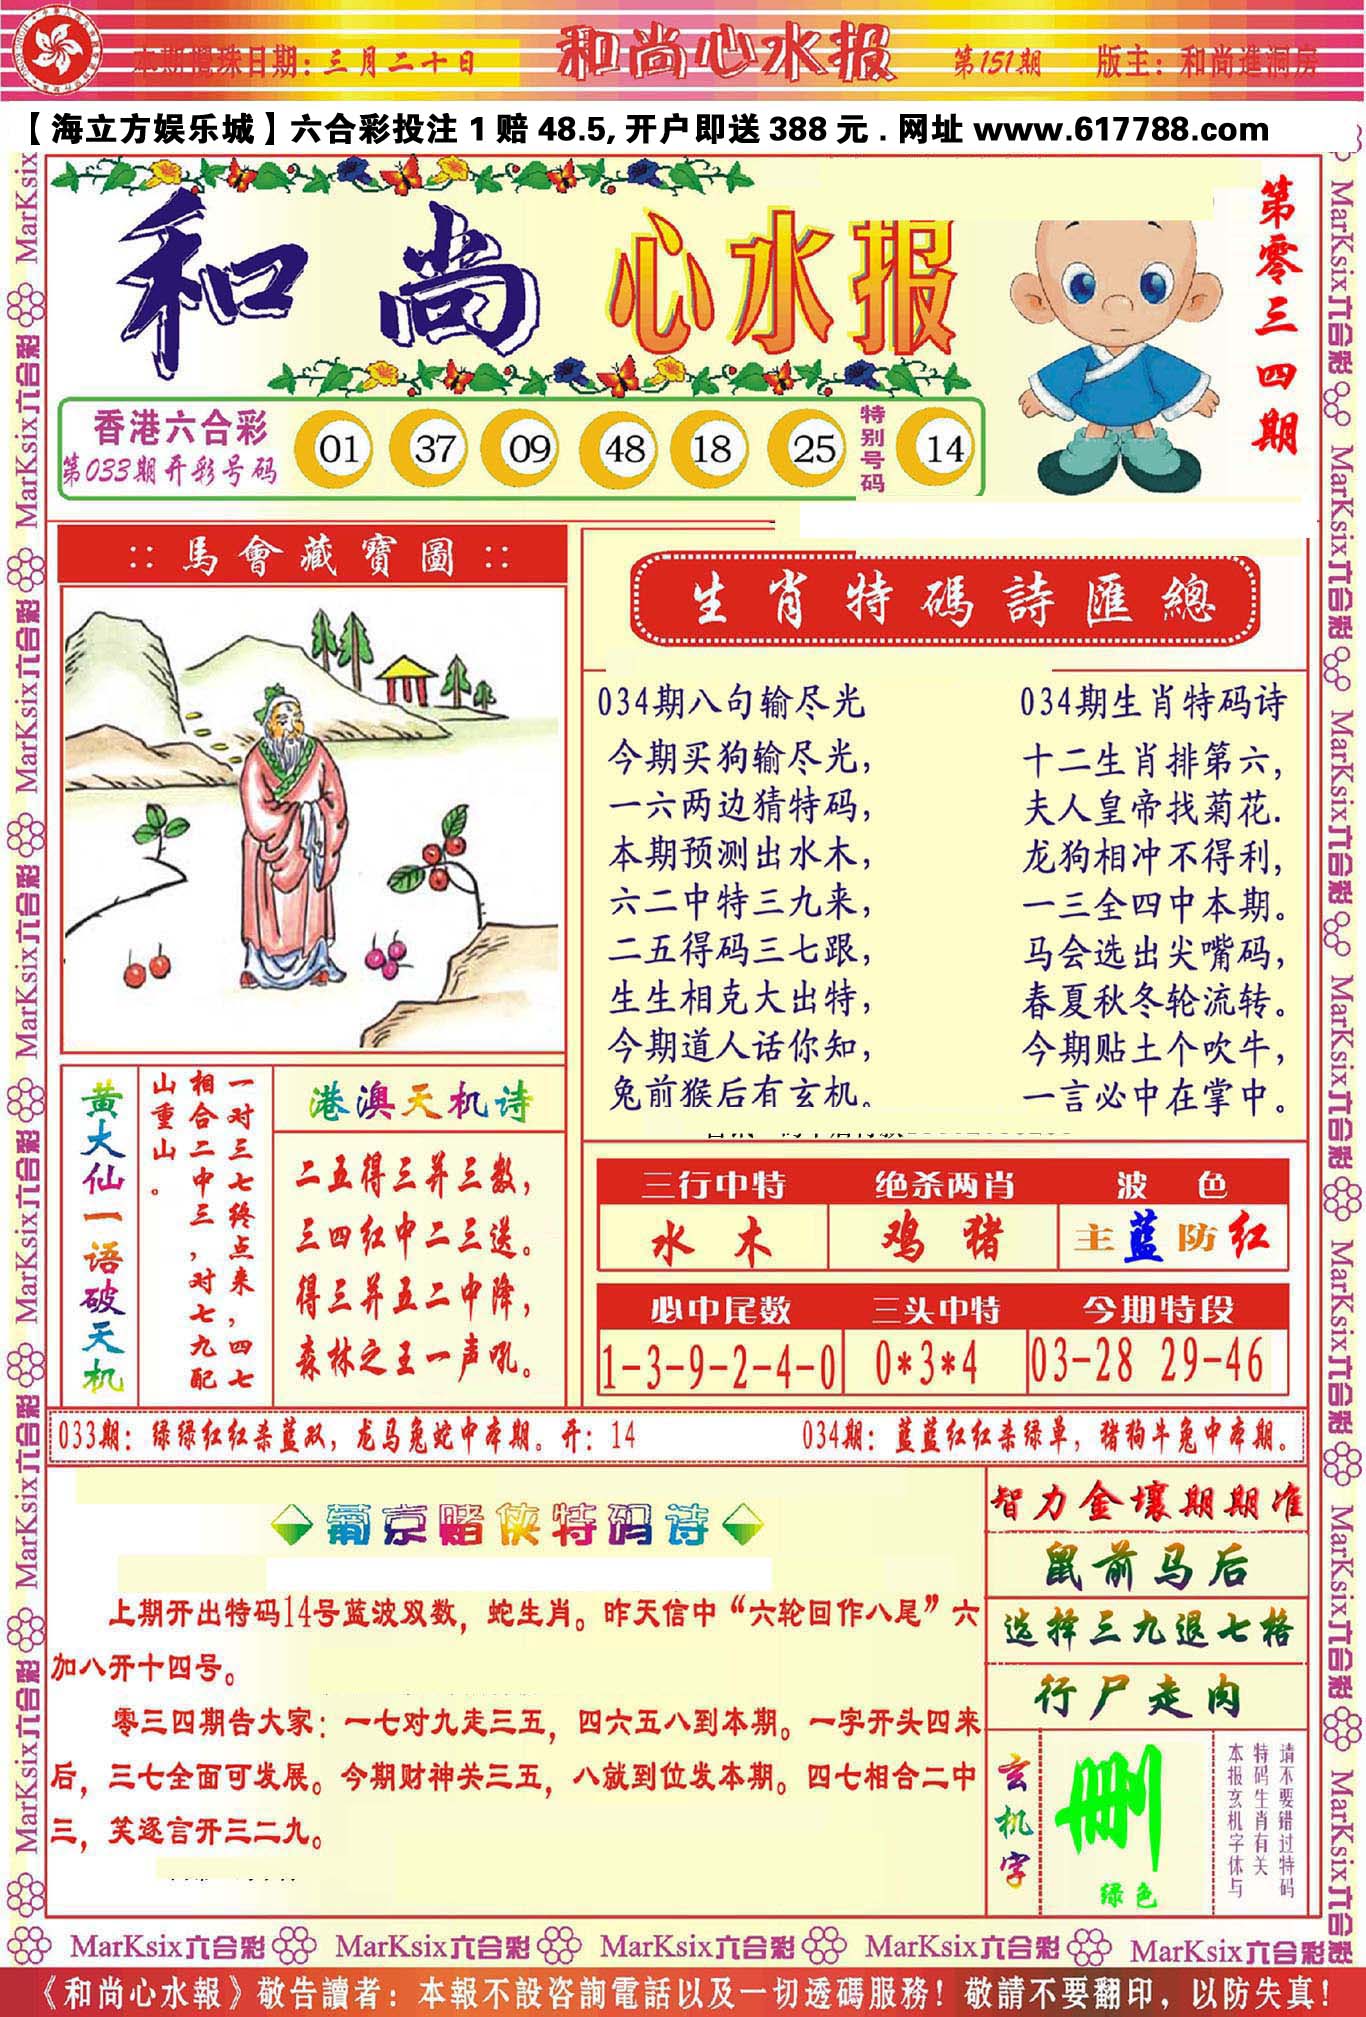 本期攪珠日期：三月二十日
和尚心水报
第151期
版主：和尚進洞房
【海立方娱乐城】六合彩投注 1 赔 48.5, 开户即送 388 元 . 网址 www.617788.com
和尚心水报
第零三四期
香港六合彩
第033期开彩号码
01 37 09 48 18 25
特别号码
14
:: 馬會藏寶圖 ::
生肖特碼詩匯總
034期八句输尽光
今期买狗输尽光，
一六两边猜特码，
本期预测出水木，
六二中特三九来，
二五得码三七跟，
生生相克大出特，
今期道人话你知，
兔前猴后有玄机。
034期生肖特码诗
十二生肖排第六，
夫人皇帝找菊花.
龙狗相冲不得利，
一三全四中本期。
马会选出尖嘴码，
春夏秋冬轮流转。
今期贴土个吹牛，
一言必中在掌中。
黄大仙一语破天机
一对三七终点来，四七
相合二中三，对七九配
山重山。
港澳天机诗
二五得三并三数，
三四红中二三送。
得三并五二中降，
森林之王一声吼。
三行中特 绝杀两肖 波 色
水 木 鸡 猪 主蓝防红
必中尾数 三头中特 今期特段
1-3-9-2-4-0 0*3*4 03-28 29-46
033期：绿绿红红杀蓝双，龙马兔蛇中本期。开：14
034期：蓝蓝红红杀绿单，猪狗牛兔中本期。
葡京赌侠特码诗
上期开出特码14号蓝波双数，蛇生肖。昨天信中“六轮回作八尾”六
加八开十四号。
零三四期告大家：一七对九走三五，四六五八到本期。一字开头四来
后，三七全面可发展。今期财神关三五，八就到位发本期。四七相合二中
三，笑逐言开三二九。
智力金壤期期准
鼠前马后
选择三九退七格
行尸走肉
玄机字
删
绿色
请不要错过特码
特码生肖有关
本报玄机字体与
MarKsix六合彩 MarKsix六合彩 MarKsix六合彩 MarKsix六合彩 MarKsix六合彩
《和尚心水報》敬告讀者：本報不設咨詢電話以及一切透碼服務！敬請不要翻印，以防失真！